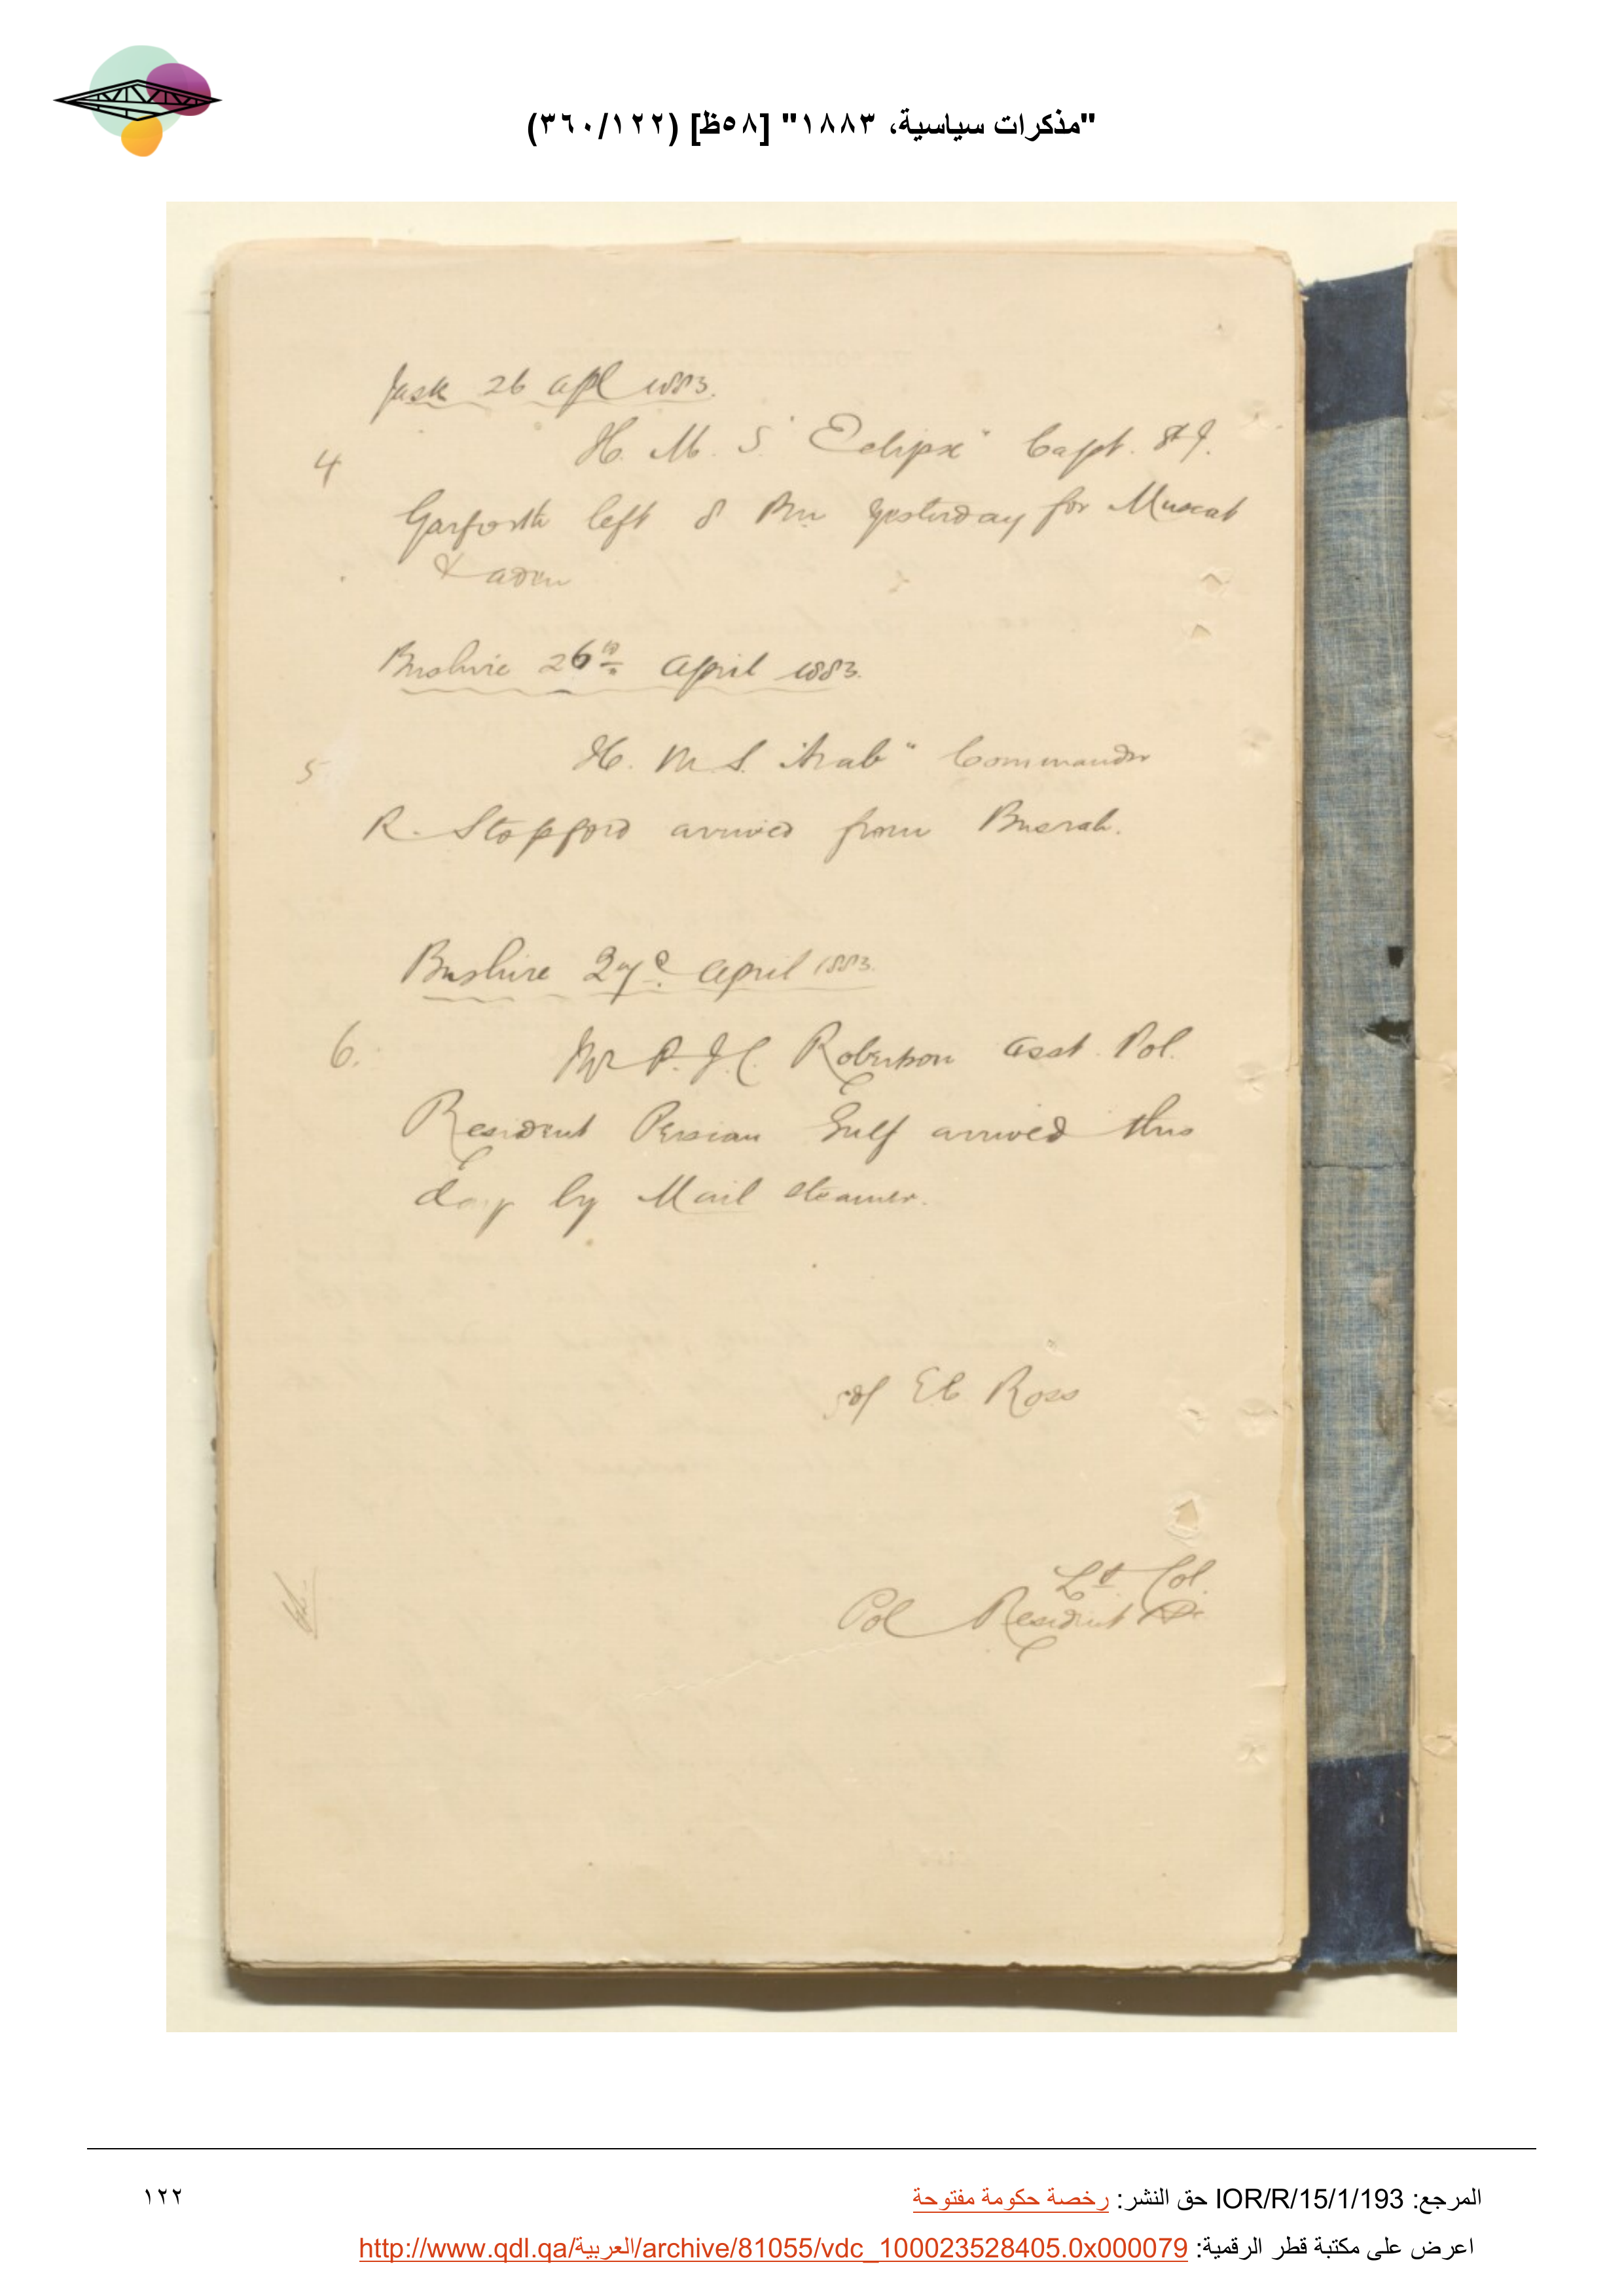 "مذكرات سياسية، ١٨٨٣" [٥٨ظ] (٣٦٠/١٢٢)
Jask 26 Apl 1883.
4
H. M. S. "Eclipse" Capt.
Garforth left yesterday for Muscat
& Aden
Bushire 26th April 1883.
5
H. M. S. "Arab" Commander
R. Stopford arrived from Busrah.
Bushire 27 April 1883.
6.
Mr P. J. C. Robertson Asst. Pol.
Resident Persian Gulf arrived this
day by Mail Steamer.
sd/ E C Ross
Lt. Col.
Pol Resident
المرجع: IOR/R/15/1/193 حق النشر: رخصة حكومة مفتوحة
١٢٢
اعرض على مكتبة قطر الرقمية: http://www.qdl.qa/العربية/archive/81055/vdc_100023528405.0x000079